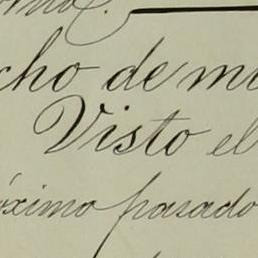 cho de mi
Visto el
óximo pasado